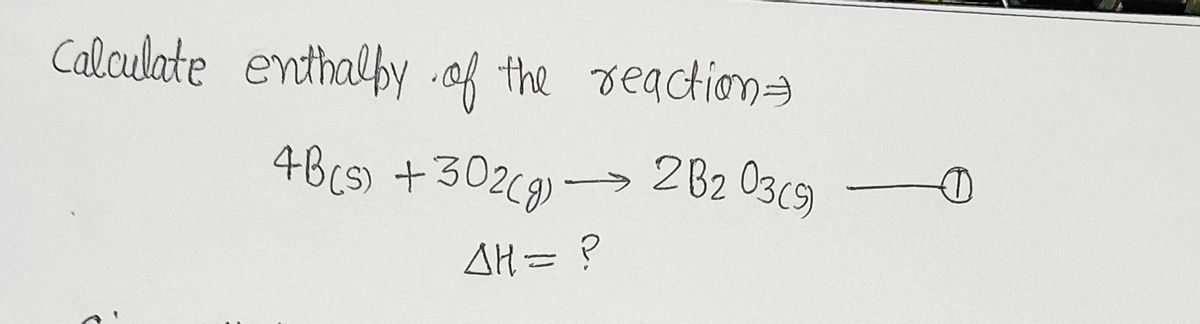 Calculate enthalpy of the reaction⇒
4B(s) + 3O2(g) → 2B2O3(s) — ①
ΔH = ?